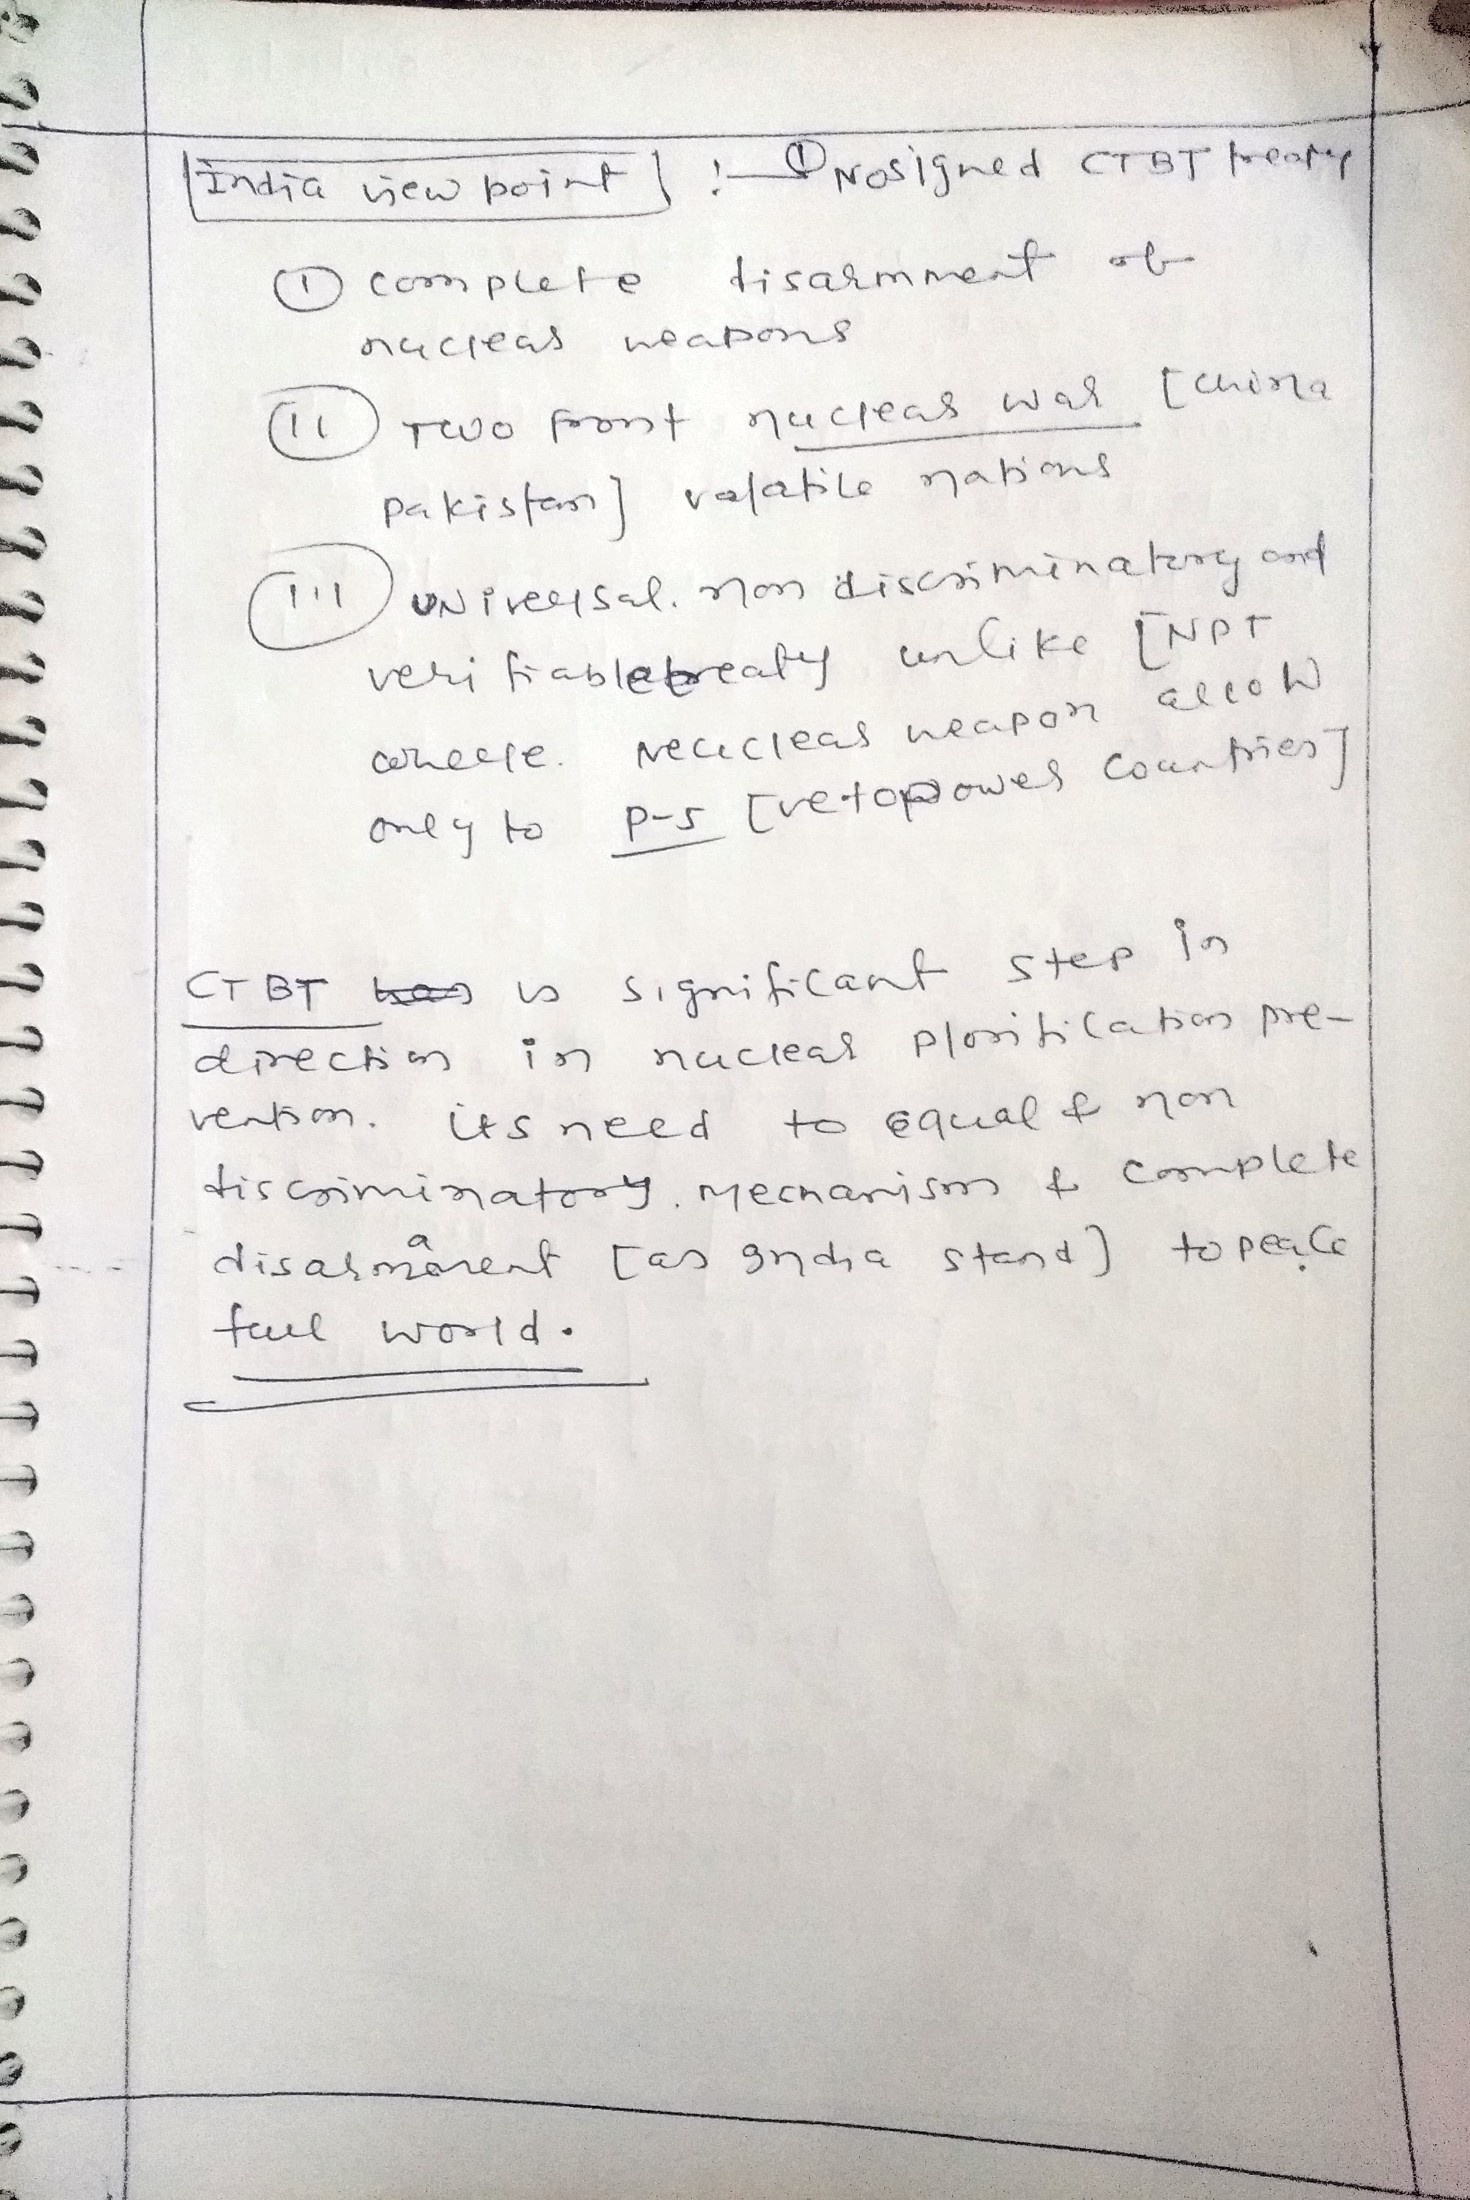 [India view point] :- ① Nosigned CTBT treaty
① complete disarmment of
nuclear weapons
(ii) Two front nuclear war [China
Pakistan] volatile nations
(iii) Universal. non discriminatory and
verifiable treaty unlike [NPT
where. Nuclear weapon allow
only to P-5 [vetopower countries]
CTBT is significant step in
direction in nuclear plorification pre-
vention. its need to equal & non
discriminatory. Mechanism & complete
disarmament [as India stand] to peace
full world.